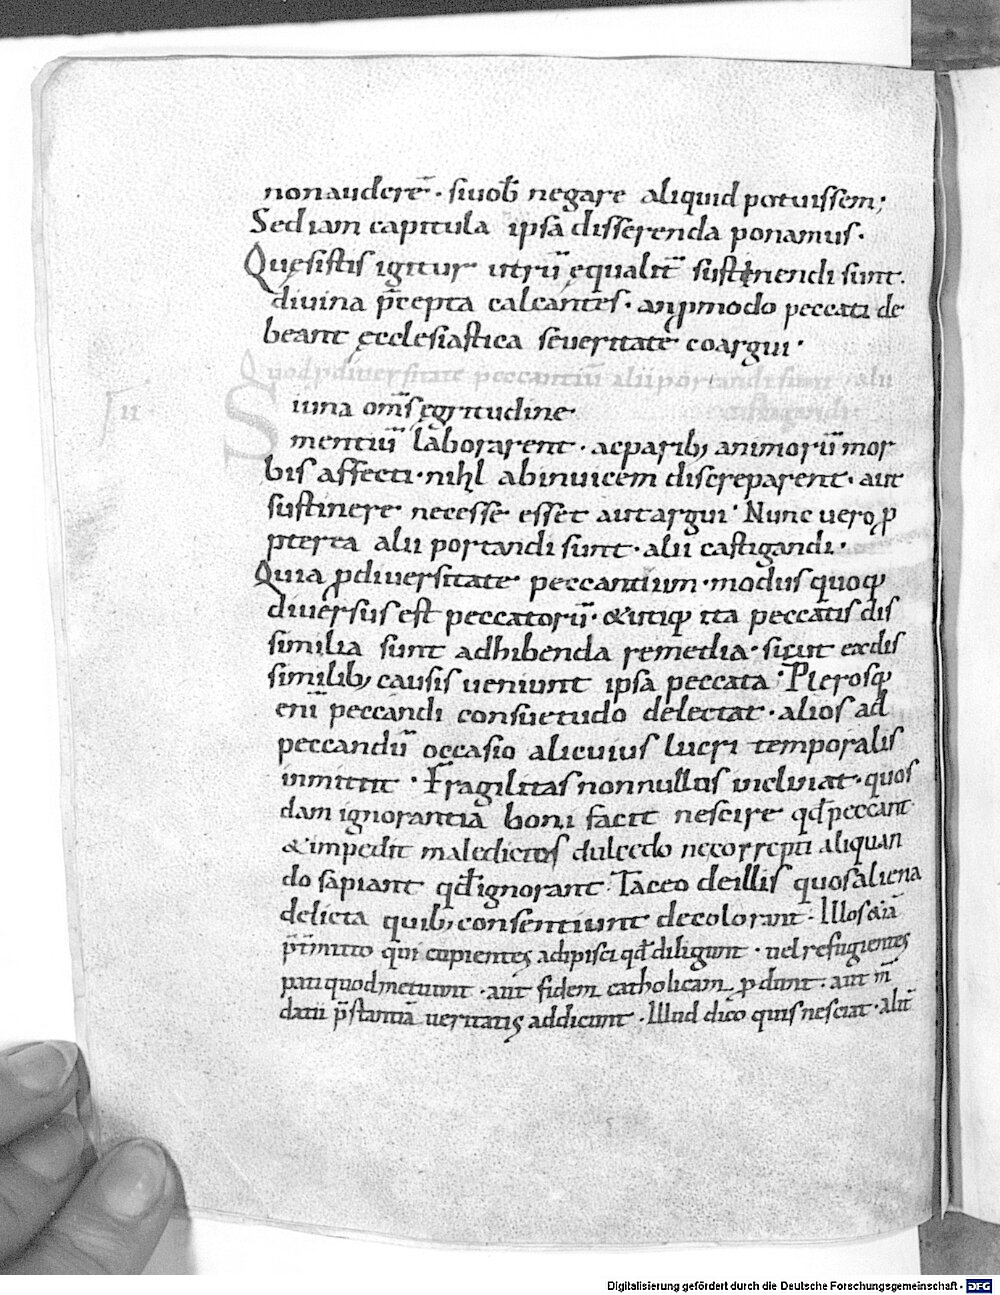 nonaudere͞ · siuob̄ negare aliquid potuissem;
Sed iam capitula ipsa disserenda ponamus.
Quęsistis igitur utrū ęqualit͞ sustinendi sunt.
diuina p͞cepta calcantes · anꝓmodo peccati de
beant ęcclesiastica seueritate coargui ·
Quod ꝓdiuersitate peccantiū alii portandi sunt alii
castigandi ·
II ·
Si una om͞s ęgritudine
mentiū laborarent · acparib; animorū mor
bis affecti · nihl abinuicem discreparent · aut
sustinere necesse esset aut argui · Nunc uero ꝓ
pterea alii portandi sunt · alii castigandi ·
Quia ꝓdiuersitate peccantium · modus quoq;
diuersus est peccatorū · & utiq; ita peccatis dis
similia sunt adhibenda remedia · sicut exdis
similib; causis ueniunt ipsa peccata · Plerosq;
enī peccandi consuetudo delectat · alios ad
peccandū occasio alicuius lucri temporalis
inmittit · Fragilitas nonnullos inclinat · quos
dam ignorantia boni facit nescire qd̄ peccant
& impedit maledictos dulcedo necorrepti aliquan
do sapiant qd̄ ignorant · Taceo deillis quos aliena
delicta quib; consentiunt decolorant · Illos &iā
p͞t͞mitto qui cupientes adipisci qd̄ diligunt · uel refugientes
pati quod metuunt · aut fidem catholicam ꝓdunt · aut m͞
datū p͞stantiā ueritatis addicunt · Illud dico quis nesciat · alit͞
Digitalisierung gefördert durch die Deutsche Forschungsgemeinschaft - DFG